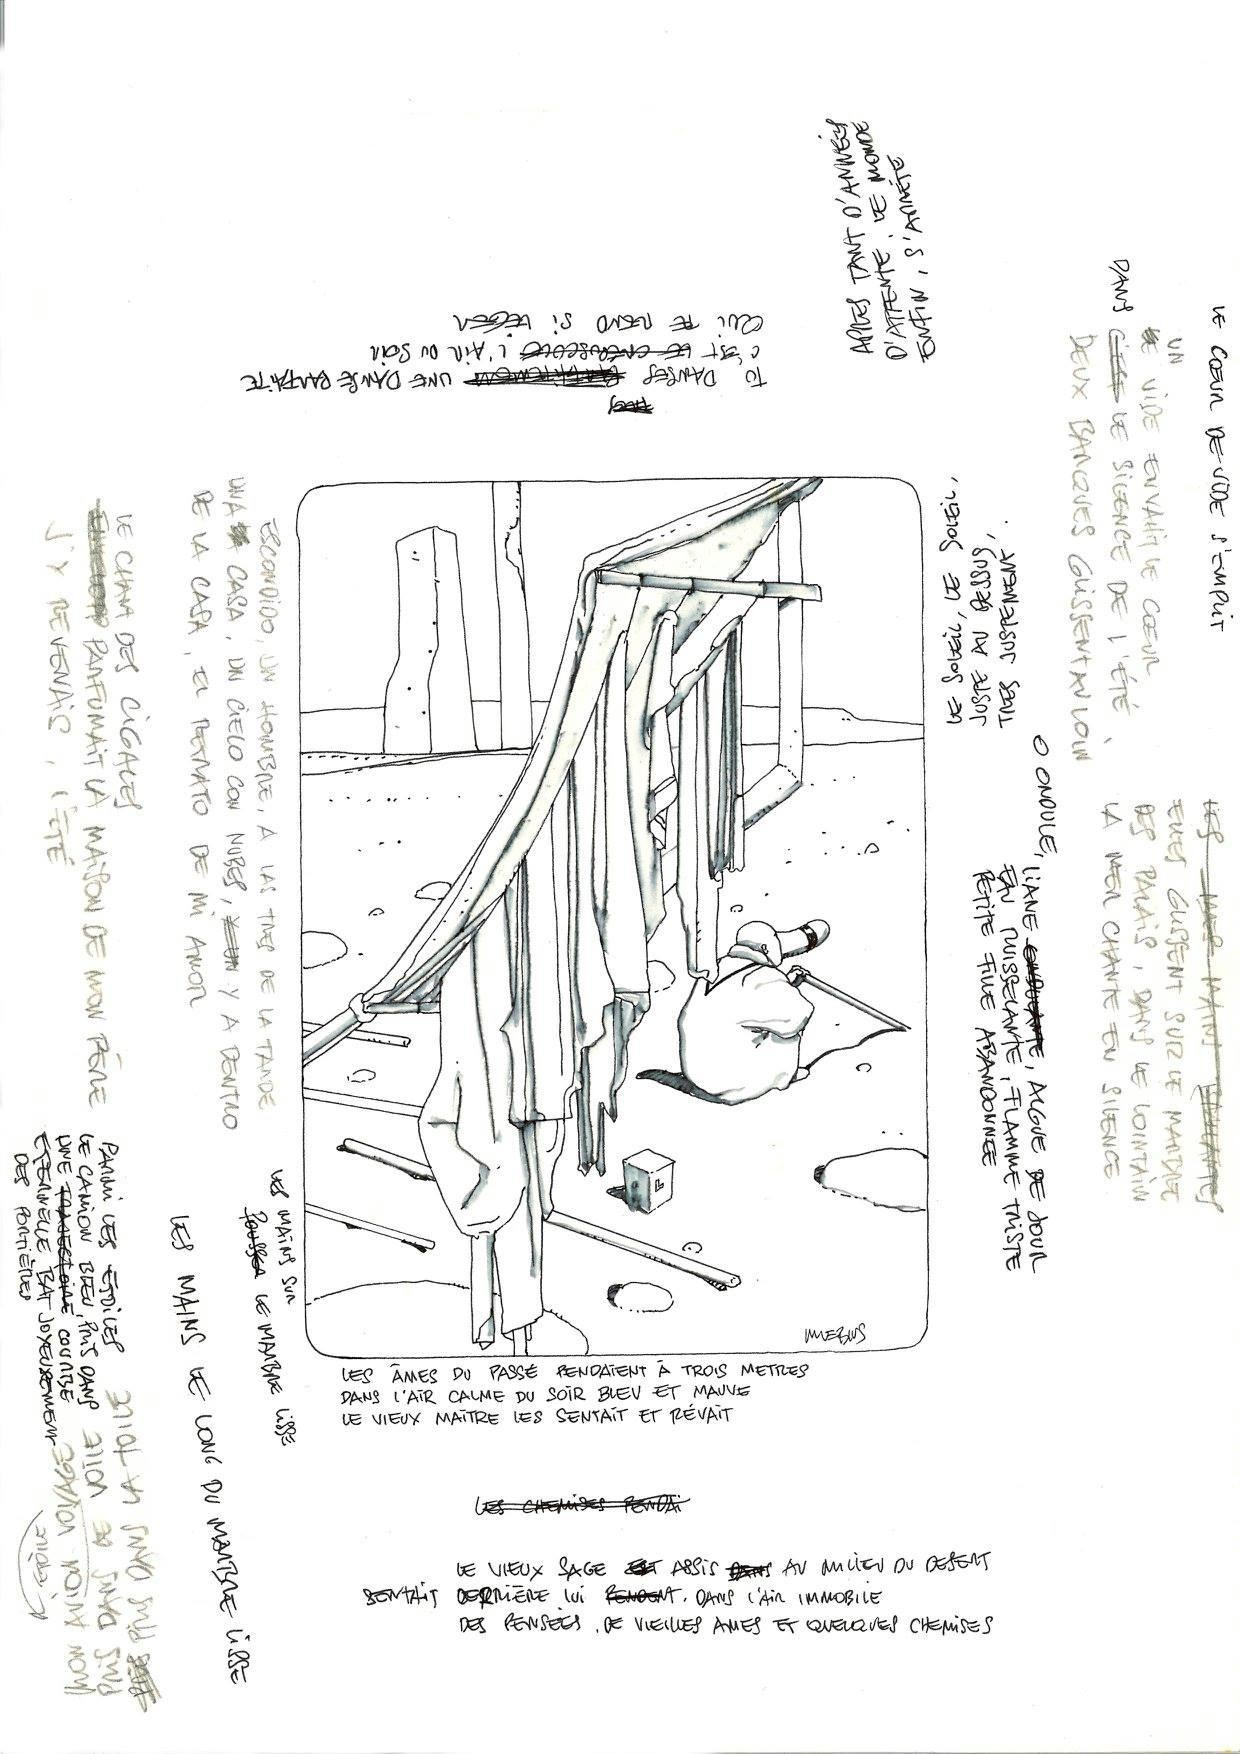 APRÈS TANT D'ANNÉES
D'ATTENTE, LE MONDE
ENFIN, S'ARRÊTE
TU DANSES UNE DANSE PARFAITE
C'EST L'AIR DU SOIR
QUI TE REND SI LÉGER
LE CŒUR DE VIDE S'EMPLIT
UN
VIDE ENVAHIT LE CŒUR
DANS LE SILENCE DE L'ÉTÉ,
DEUX BARQUES GLISSENT AU LOIN
LE SOLEIL, LE SOLEIL,
JUSTE AU DESSUS,
TRÈS JUSTEMENT.
O ONDULE, LIANE ONDULANTE, ALGUE DE JOUR
EAU RUISSELANTE, FLAMME TRISTE
PETITE FILLE ABANDONNÉE
LES MAINS
ELLES GLISSENT SUR LE MARBRE
DES PALAIS, DANS LE LOINTAIN
LA MER CHANTE EN SILENCE
ESCONDIDO, UN HOMBRE, A LAS TRES DE LA TARDE
UNA CASA, UN CIELO CON NUBES, Y A DENTRO
DE LA CASA, EL RETRATO DE MI AMOR
LE CHANT DES CIGALES
PARFUMAIT LA MAISON DE MON PÈRE
J'Y REVENAIS, L'ÉTÉ
LES MAINS SUR
POUSSER LE MARBRE LISSE
LES MAINS LE LONG DU MARBRE LISSE
PARMI LES ÉTOILES
LE CAMION BLEU, PRIS DANS
UNE TRAJECTOIRE COURBE
ÉTERNELLE BAT JOYEUSEMENT
DES PORTIÈRES
PLIS DANS LA TOILE
PLIS DANS DE VOILE
MON AVION VOYAGE
L'ÉTOILE
MŒBIUS
LES ÂMES DU PASSÉ PENDAIENT À TROIS METRES
DANS L'AIR CALME DU SOIR BLEU ET MAUVE
LE VIEUX MAÎTRE LES SENTAIT ET RÊVAIT
LES CHEMISES PENDAI
LE VIEUX SAGE EST ASSIS DANS AU MILIEU DU DESERT
SENTAIT DERRIÈRE LUI PENDENT. DANS L'AIR IMMOBILE
DES PENSÉES, DE VIEILLES AMES ET QUELQUES CHEMISES